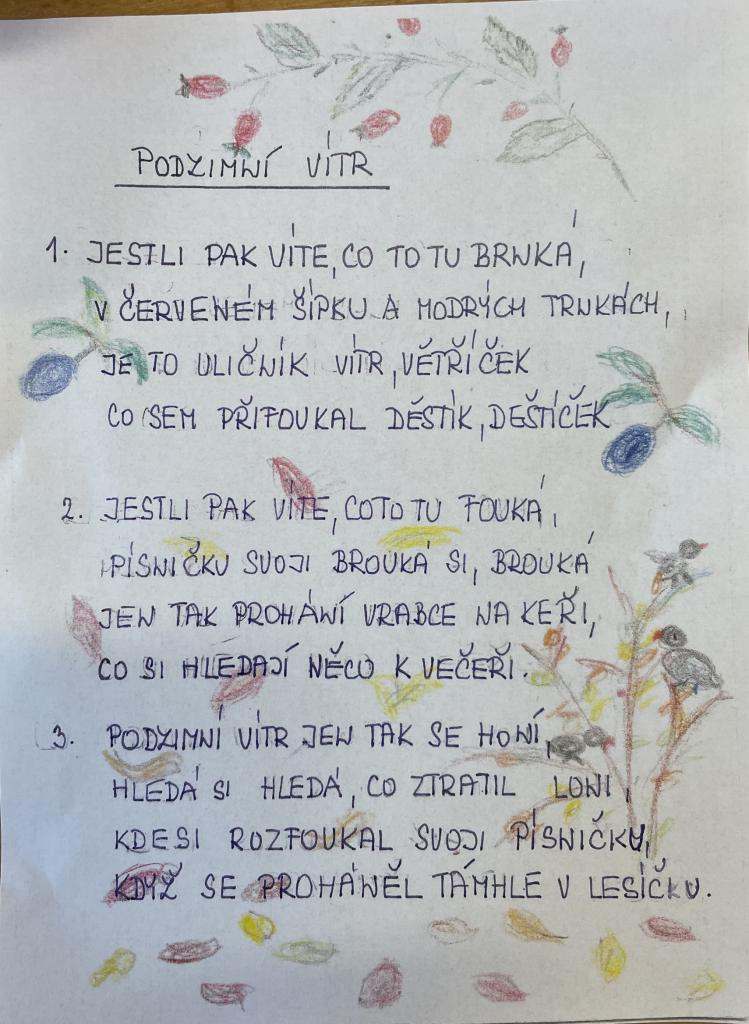 PODZIMNÍ VÍTR
1. JESTLI PAK VÍTE, CO TO TU BRNKÁ,
V ČERVENÉM ŠÍPKU A MODRÝCH TRNKÁCH,
JE TO ULIČNÍK VÍTR, VĚTŘÍČEK
CO SEM PŘIFOUKAL DÉŠTÍK, DEŠTÍČEK
2. JESTLI PAK VÍTE, COTO TU FOUKÁ,
PÍSNIČKU SVOJI BROUKÁ SI, BROUKÁ
JEN TAK PROHÁNÍ VRABCE NA KEŘI,
CO SI HLEDAJÍ NĚCO K VEČEŘI.
3. PODZIMNÍ VÍTR JEN TAK SE HONÍ,
HLEDÁ SI HLEDÁ, CO ZTRATIL LONI,
KDESI ROZFOUKAL SVOJI PÍSNIČKU,
KDYŽ SE PROHÁNĚL TÁMHLE V LESÍČKU.